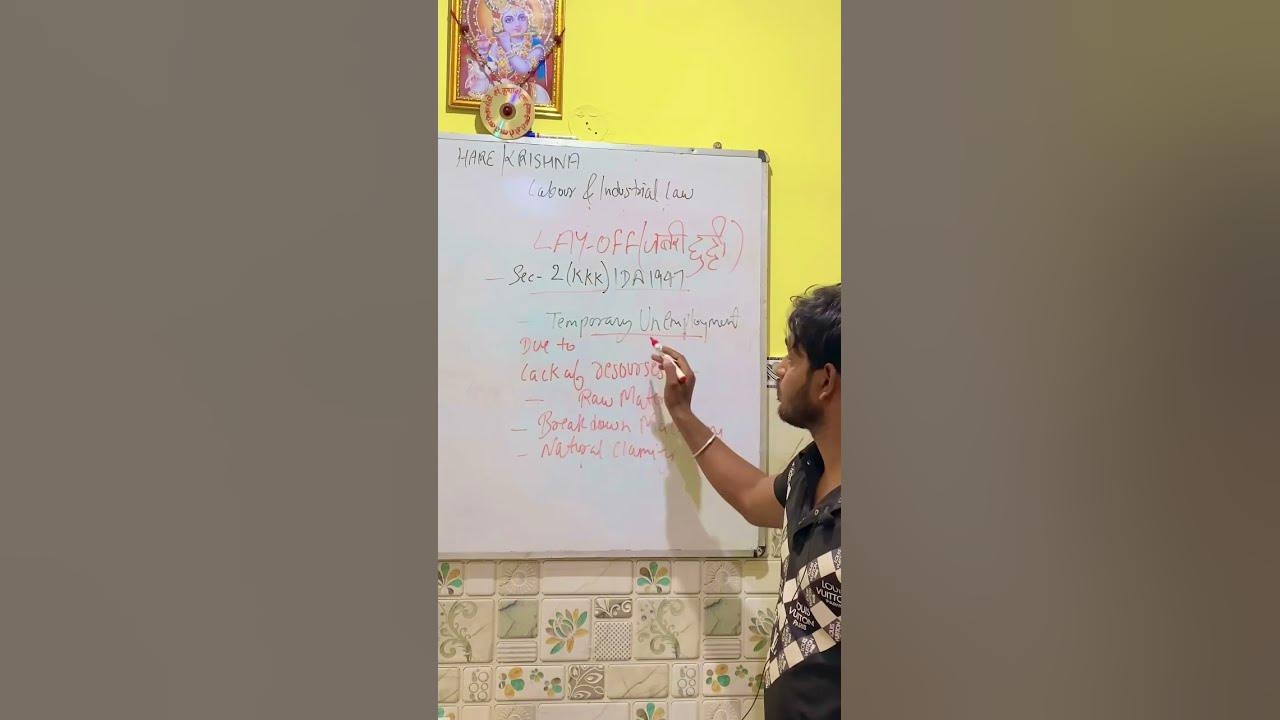 HARE KRISHNA
Labour & Industrial Law
LAY-OFF (जबरी छुट्टी)
- Sec- 2 (KKK) IDA 1947
- Temporary UnEmployment
Due to
Lack of resourses -
- Raw Mat
- Breakdown M
- Natural Clamit
LOUIS
VUITTON
PARIS